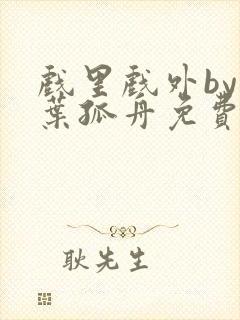 戲里戲外by
葉孤舟免費
耿先生